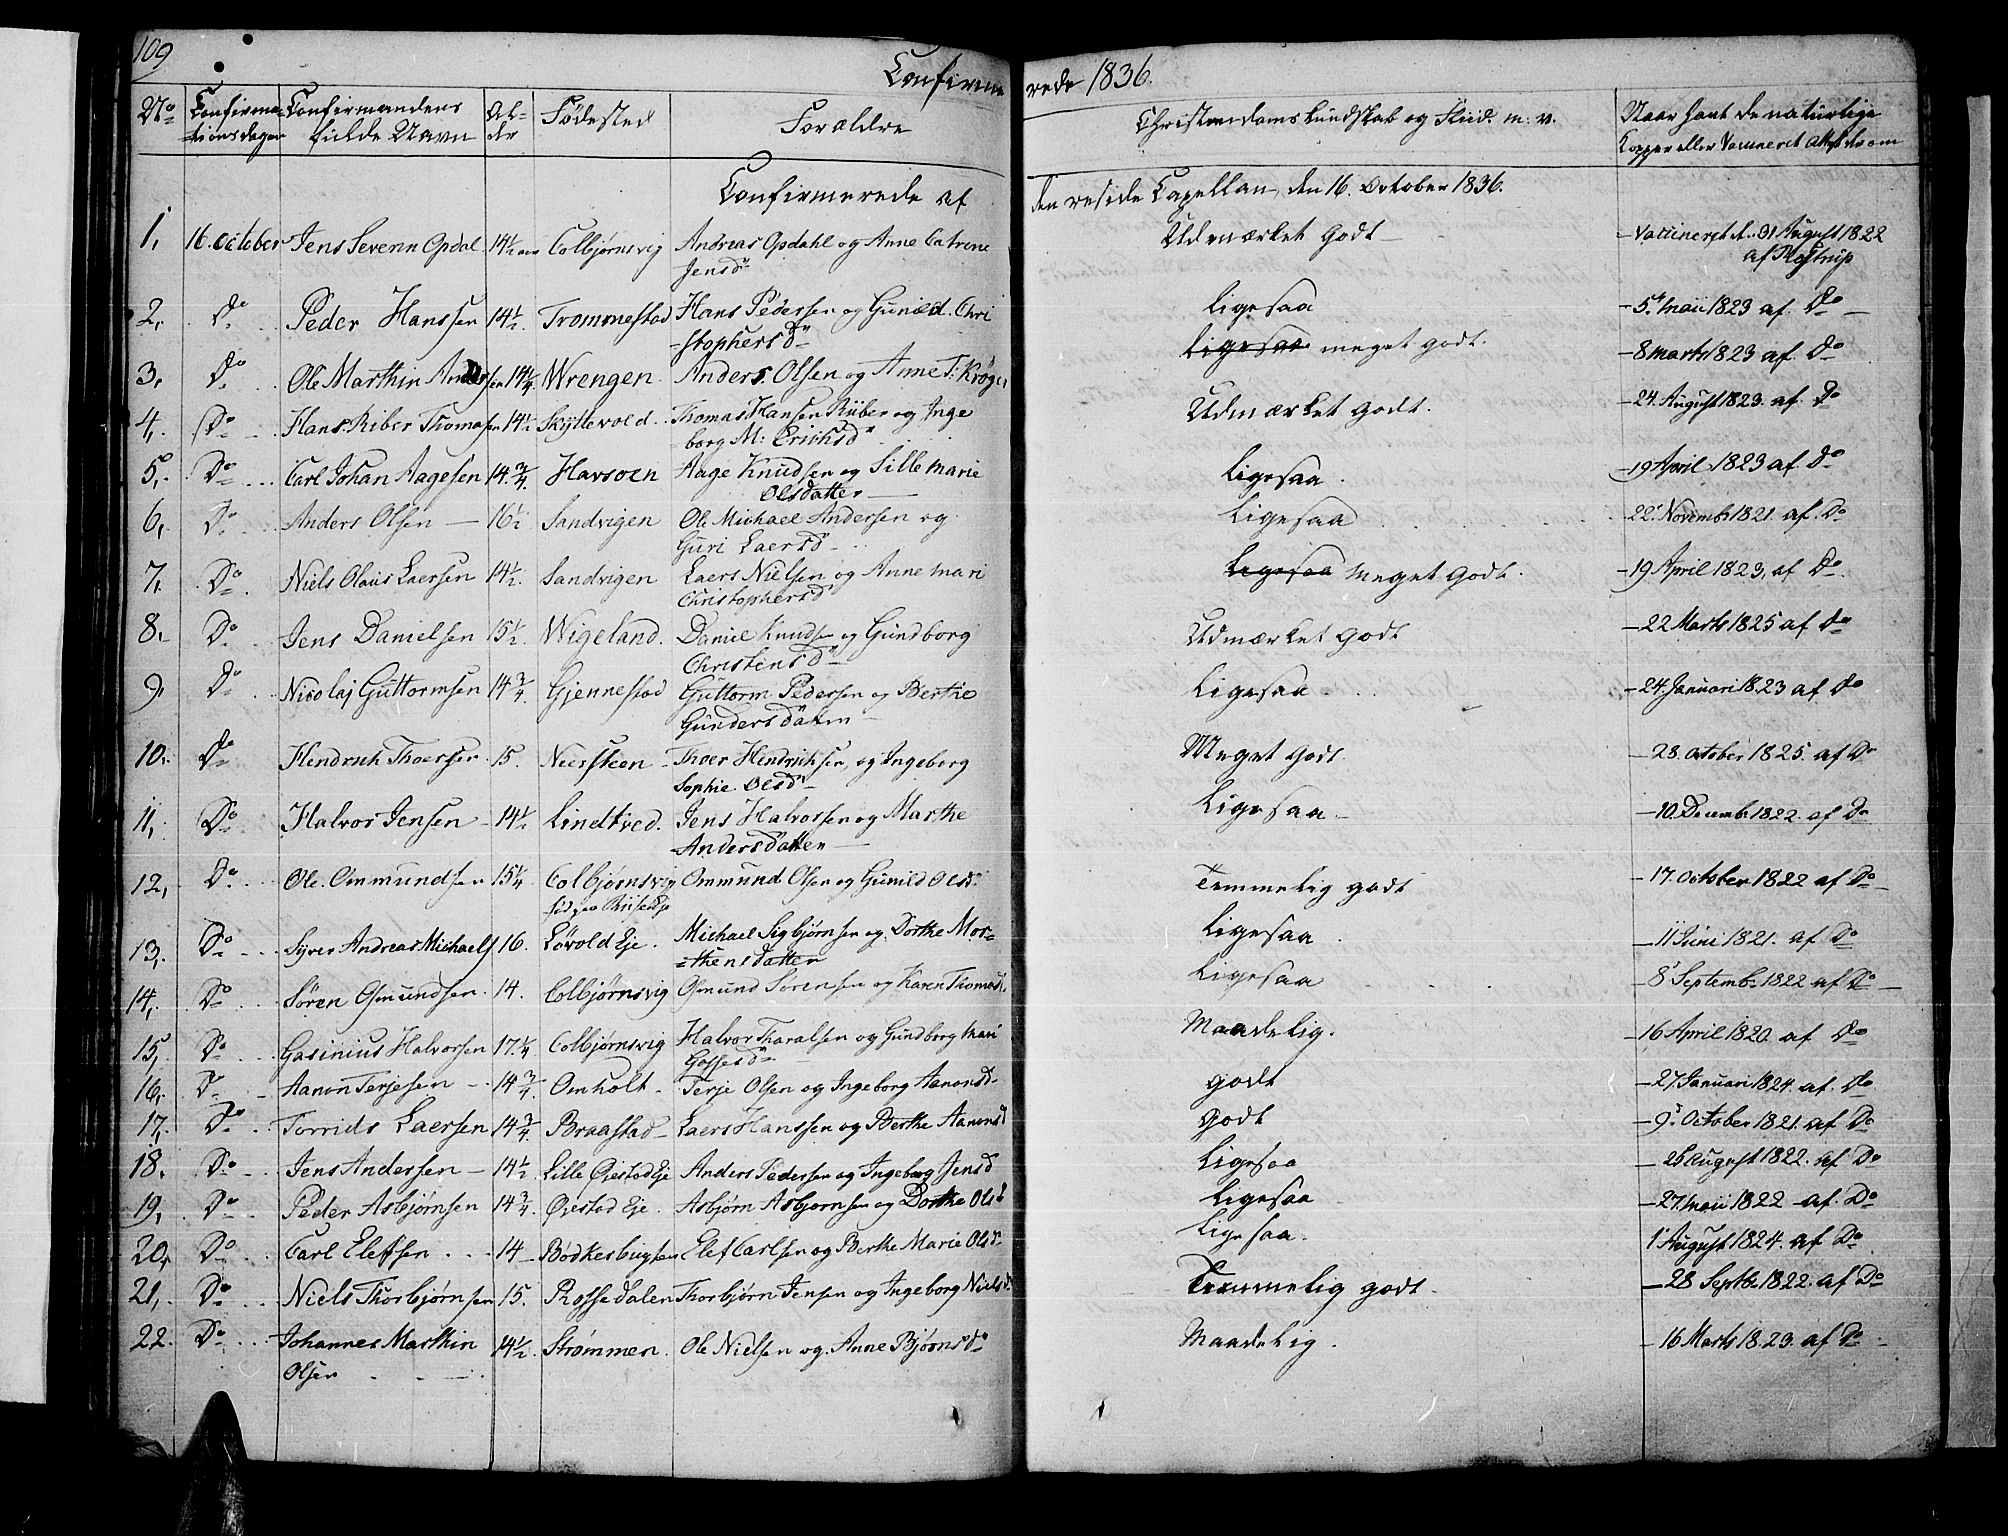 109
Confirme
rede 1836.
No Confirma- Confirmandens Al- Fødested Forældre Christendoms Kundskab og Flid. m: v. Naar havt de naturlige
tionsdagen fulde Navn der Kopper eller Vaccineret Attest derom
Confirmerede af den reside Capellan, den 16. October 1836.
1, 16. October Jens Severin Opdal 14 1/2 Colbjørnsvig Andreas Opdahl og Anne Catrene Udmærket Godt - Vaccineret d. 31 August 1822
Jensd af Rostrup
2, Do Peder Hanssen 14 1/2 Trommestad Hans Pedersen og Gunild Chri Ligesaa - 5 Maii 1823 af Do
-stophersd
3, Do Ole Marthin Andersen 14 1/4 Wrengen Anders Olsen og Anne T: Krøger Ligesaa meget godt. - 8 Marts 1823 af Do
4, Do Hans Riber Thomasen 14 1/2 Skyttevold Thomas Hansen Riiber og Inge Udmærket Godt. - 24 August 1823. af Do
borg M: Erichsd
5, Do Carl Johan Aagesen 14 3/4 Havsoen Aage Knudsen og Sille Marie Ligesaa - 19 April 1823 af Do
Olsdatter
6, Do Anders Olsen 16 1/2 Sandvigen Ole Michael Andersen og Ligesaa - 22 Novembr 1821. af Do
Guri Laersd
7, Do Niels Olaus Laersen 14 1/2 Sandvigen Laers Nielsen og Anne Mari Ligesaa Meget Godt. - 19 April 1823, af Do
Christophersd
8, Do Jens Danielsen 15 1/2 Wigeland Daniel Knudsen og Gundborg Udmærket Godt - 22 Marts 1825 af Do
Christensd
9, Do Nicolaj Guttormsen 14 3/4 Gjennestad Guttorm Pedersen og Berthe Ligesaa - 24. Januari 1823 af Do
Gundersdatter
10, Do Hendrich Thoersen 15. Niersteen Thoer Hendrichsen, og Ingeborg Meget Godt. - 28. October 1825. af Do
Sophie Olsd
11, Do Halvor Jensen 14 1/2 Lindtved. Jens Halvorsen og Marthe Ligesaa - 10. Decembr 1822. af Do
Andersdatter
12, Do Ole Ommundsen 15 1/4 Colbjørnsvig Ommund Olsen og Gunild Olsd Temmelig godt - 17. October 1822 af Do
13, Do Syver Andreas Michaels 16. Løvold Eje. Michael Sigbjørnsen og Dorthe Mor= Ligesaa - 11 Juni 1821. af Do
=thensdatter
14, Do Søren Osmundsen 14. Colbjørnsvig Osmund Sørensen og Karen Thomasd Ligesaa - 8 Septembr 1822 af Do
15, Do Gasinius Halvorsen 17 1/4 Colbjørnsvig Halvor Tharalsen og Gundborg Mari Maadelig. - 16 April 1820 af Do
Gassesd
16, Do Aanon Terjesen 14 3/4 Omholt Terje Olsen og Ingeborg Aanonsd. godt - 27 Januari 1824. af Do
17, Do Torrids Laersen 14 3/4 Braastad Laers Hanssen og Berthe Aanonsd godt - 9 October 1821. af Do
18. Do Jens Andersen 14 1/2 Lille Øiestad Eje Anders Pedersen og Ingeborg Jensd Ligesaa - 25 August 1822. af Do
19, Do Peder Asbjørnsen 14 3/4 Øiestad Eje. Asbjørn Asbjørnsen og Dorthe Olsd Ligesaa - 27. Maii 1822 - af. Do
20, Do Carl Elefsen 14 Bødkerbugten Elef Carlsen og Berthe Marie Olsd. Ligesaa. 1 August 1824. af Do
21, Do Niels Thorbjørnsen 15. Rossedalen Thorbjørn Jensen og Ingeborg Nielsd. Temmelig godt - 28 Septbr. 1822. af Do
22. Do Johannes Marthin 14 1/2 Strømmen. Ole Nielsen og Anne Bjørnsd Maadelig. - 16 Marts 1823. af Do
Olsen